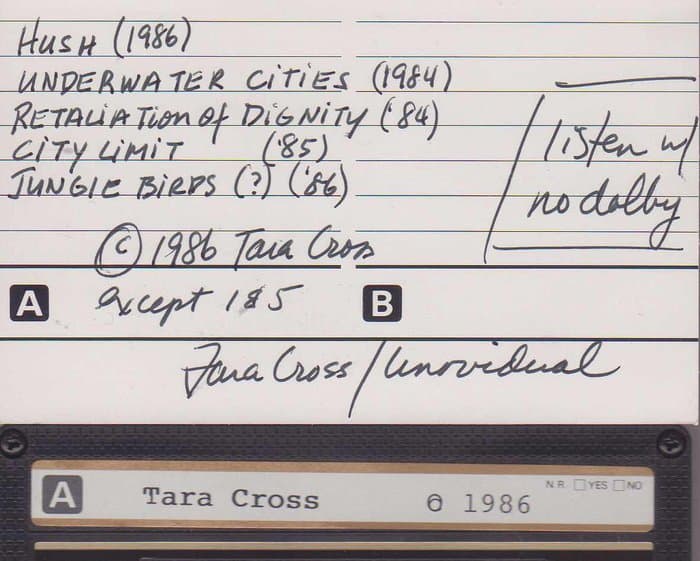 HUSH (1986)
UNDERWATER CITIES (1984)
RETALIATION of DIGNITY ('84)
CITY LIMIT ('85)
JUNGLE BIRDS (?) ('86)
listen w/
no dolby
© 1986 Tara Cross
except 1 & 5
A
B
Tara Cross / Unovidual
A
Tara Cross
© 1986
N.R. □YES □NO